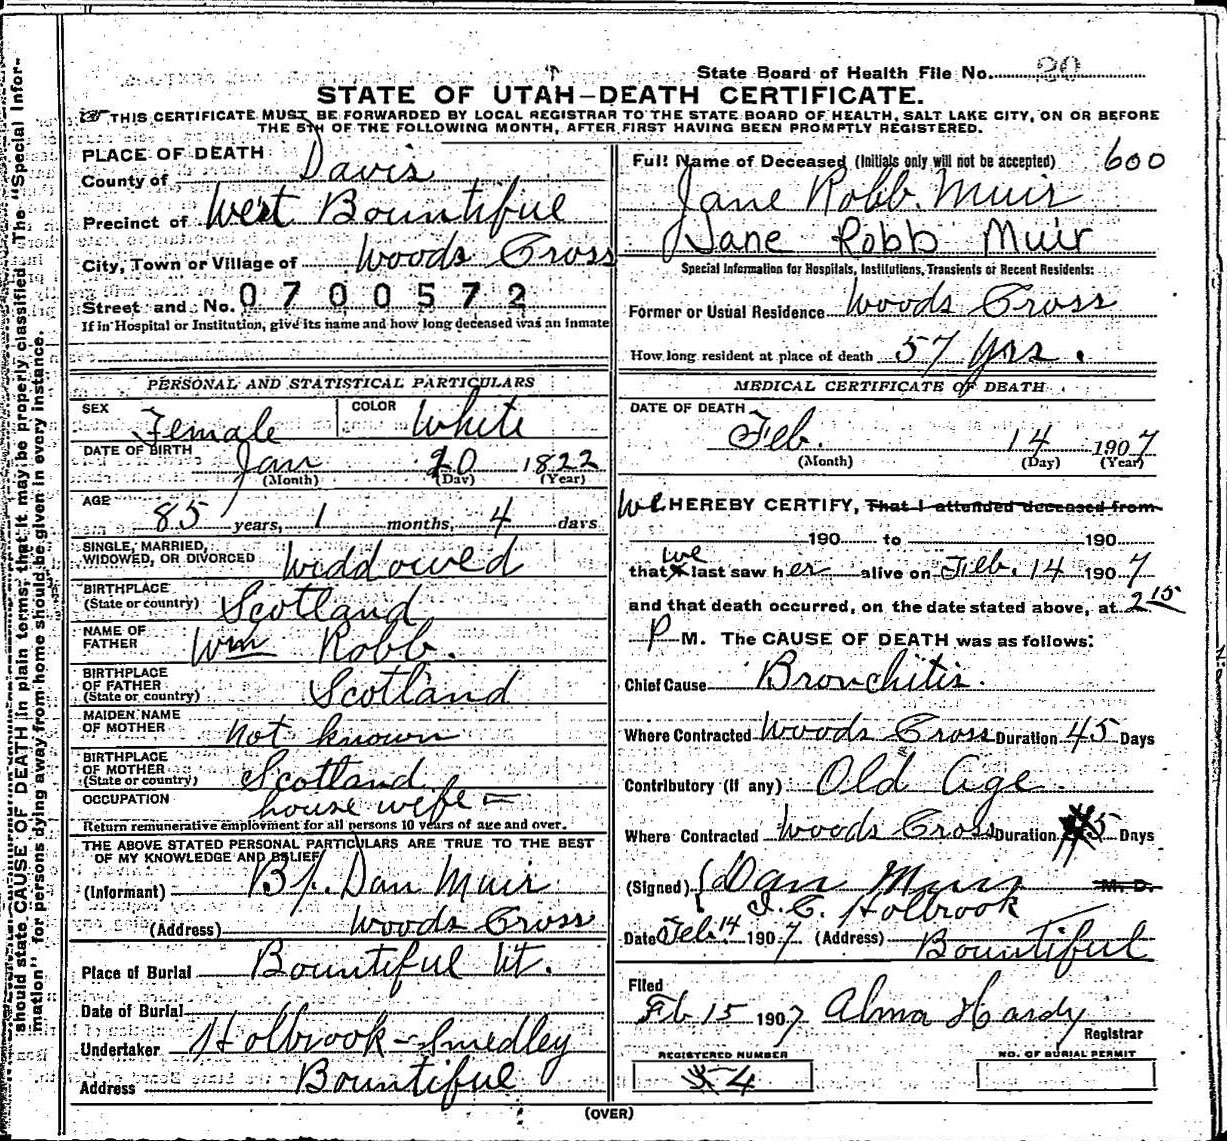 State Board of Health File No. 20
STATE OF UTAH—DEATH CERTIFICATE.
THIS CERTIFICATE MUST BE FORWARDED BY LOCAL REGISTRAR TO THE STATE BOARD OF HEALTH, SALT LAKE CITY, ON OR BEFORE
THE 5TH OF THE FOLLOWING MONTH, AFTER FIRST HAVING BEEN PROMPTLY REGISTERED.
should state CAUSE OF DEATH in plain terms, that it may be properly classified. The "Special Infor-
mation" for persons dying away from home should be given in every instance.
PLACE OF DEATH
County of Davis
Precinct of West Bountiful
City, Town or Village of Woods Cross
Street and No. 0700572
If in Hospital or Institution, give its name and how long deceased was an inmate
PERSONAL AND STATISTICAL PARTICULARS
SEX Female COLOR White
DATE OF BIRTH Jan 20 1822
(Month) (Day) (Year)
AGE 85 years, 1 months, 4 days
SINGLE, MARRIED,
WIDOWED, OR DIVORCED Widdowed
BIRTHPLACE
(State or country) Scotland
NAME OF
FATHER Wm Robb.
BIRTHPLACE
OF FATHER
(State or country) Scotland
MAIDEN NAME
OF MOTHER not known
BIRTHPLACE
OF MOTHER
(State or country) Scotland
OCCUPATION house wife
Return remunerative employment for all persons 10 years of age and over.
THE ABOVE STATED PERSONAL PARTICULARS ARE TRUE TO THE BEST
OF MY KNOWLEDGE AND BELIEF
(Informant) Bp. Dan Muir
(Address) Woods Cross
Place of Burial Bountiful Ut.
Date of Burial
Undertaker Holbrook-Smedley
Address Bountiful
Full Name of Deceased (Initials only will not be accepted) 600
Jane Robb. Muir
Jane Robb Muir
Special Information for Hospitals, Institutions, Transients or Recent Residents:
Former or Usual Residence Woods Cross
How long resident at place of death 57 yrs.
MEDICAL CERTIFICATE OF DEATH
DATE OF DEATH
Feb. 14 1907
(Month) (Day) (Year)
We HEREBY CERTIFY, That I attended deceased from
190 to 190
that we last saw her alive on Feb. 14 1907
and that death occurred, on the date stated above, at 2 15
P M. The CAUSE OF DEATH was as follows:
Chief Cause Bronchitis.
Where Contracted Woods Cross Duration 45 Days
Contributory (if any) Old Age.
Where Contracted Woods Cross Duration 5 Days
(Signed) Dan Muir M. D.
I. C. Holbrook
Date Feb. 14 1907 (Address) Bountiful
Filed
Feb 15 1907 Alma Hardy
Registrar
REGISTERED NUMBER
4
NO. OF BURIAL PERMIT
(OVER)